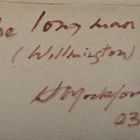 he long man
(Wilmington)
03